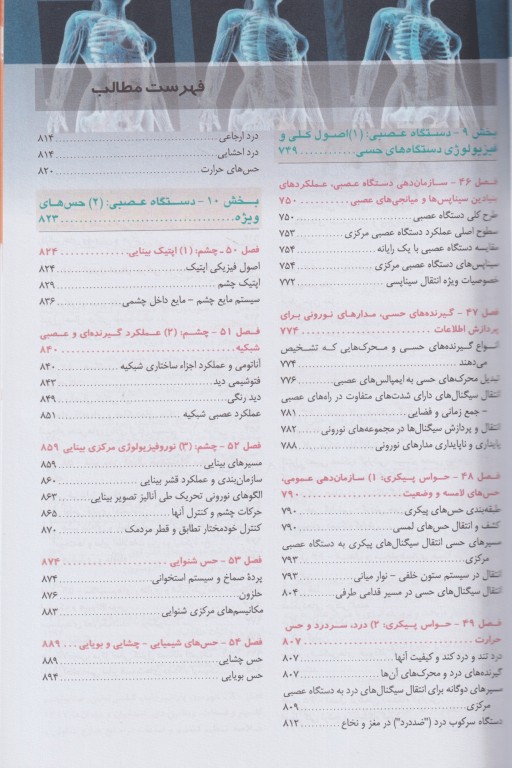 فهرست مطالب
بخش ۹ - دستگاه عصبی: (۱) اصول کلی و
فیزیولوژی دستگاه‌های حسی ............ ۷۴۹
فصل ۴۶ - سازمان‌دهی دستگاه عصبی، عملکردهای
بنیادین سیناپس‌ها و میانجی‌های عصبی ........ ۷۵۰
طرح کلی دستگاه عصبی ........ ۷۵۰
سطوح اصلی عملکرد دستگاه عصبی مرکزی ........ ۷۵۳
مقایسه دستگاه عصبی با یک رایانه ........ ۷۵۴
سیناپس‌های دستگاه عصبی مرکزی ........ ۷۵۴
خصوصیات ویژه انتقال سیناپسی ........ ۷۷۲
فصل ۴۷ - گیرنده‌های حسی، مدارهای نورونی برای
پردازش اطلاعات ........ ۷۷۴
انواع گیرنده‌های حسی و محرک‌هایی که تشخیص
می‌دهند ........ ۷۷۴
تبدیل محرک‌های حسی به ایمپالس‌های عصبی ........ ۷۷۶
انتقال سیگنال‌های دارای شدت‌های متفاوت در راه‌های عصبی
- جمع زمانی و فضایی ........ ۷۸۱
انتقال و پردازش سیگنال‌ها در مجموعه‌های نورونی ........ ۷۸۲
پایداری و ناپایداری مدارهای نورونی ........ ۷۸۸
فصل ۴۸ - حواس پیکری: ۱) سازمان‌دهی عمومی،
حس‌های لامسه و وضعیت ........ ۷۹۰
طبقه‌بندی حس‌های پیکری ........ ۷۹۰
کشف و انتقال حس‌های لمسی ........ ۷۹۰
مسیرهای حسی انتقال سیگنال‌های پیکری به دستگاه عصبی
مرکزی ........ ۷۹۳
انتقال در سیستم ستون خلفی - نوار میانی ........ ۷۹۳
انتقال سیگنال‌های حسی در مسیر قدامی طرفی ........ ۸۰۴
فصل ۴۹ - حواس پیکری: ۲) درد، سردرد و حس
حرارت ........ ۸۰۷
درد تند و درد کند و کیفیت آنها ........ ۸۰۷
گیرنده‌های درد و محرک‌های آن‌ها ........ ۸۰۷
مسیرهای دوگانه برای انتقال سیگنال‌های درد به دستگاه عصبی
مرکزی ........ ۸۰۹
دستگاه سرکوب درد ("ضددرد") در مغز و نخاع ........ ۸۱۲
درد ارجاعی ........ ۸۱۴
درد احشایی ........ ۸۱۴
حس‌های حرارت ........ ۸۲۰
بخش ۱۰ - دستگاه عصبی: (۲) حس‌های
ویژه ........ ۸۲۳
فصل ۵۰ - چشم: (۱) اپتیک بینایی ........ ۸۲۴
اصول فیزیکی اپتیک ........ ۸۲۴
اپتیک چشم ........ ۸۲۹
سیستم مایع چشم - مایع داخل چشمی ........ ۸۳۶
فصل ۵۱ - چشم: (۲) عملکرد گیرنده‌ای و عصبی
شبکیه ........ ۸۴۰
آناتومی و عملکرد اجزاء ساختاری شبکیه ........ ۸۴۰
فتوشیمی دید ........ ۸۴۳
دید رنگی ........ ۸۴۹
عملکرد عصبی شبکیه ........ ۸۵۱
فصل ۵۲ - چشم: (۳) نوروفیزیولوژی مرکزی بینایی ۸۵۹
مسیرهای بینایی ........ ۸۵۹
سازمان‌بندی و عملکرد قشر بینایی ........ ۸۶۰
الگوهای نورونی تحریک طی آنالیز تصویر بینایی ........ ۸۶۳
حرکات چشم و کنترل آنها ........ ۸۶۵
کنترل خودمختار تطابق و قطر مردمک ........ ۸۷۰
فصل ۵۳ - حس شنوایی ........ ۸۷۴
پردهٔ صماخ و سیستم استخوانی ........ ۸۷۴
حلزون ........ ۸۷۶
مکانیسم‌های مرکزی شنوایی ........ ۸۸۳
فصل ۵۴ - حس‌های شیمیایی - چشایی و بویایی ........ ۸۸۹
حس چشایی ........ ۸۸۹
حس بویایی ........ ۸۹۴